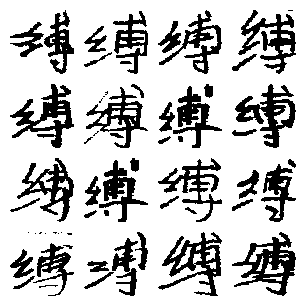 缚缚缚缚
缚缚缚缚
缚缚缚缚
缚缚缚缚